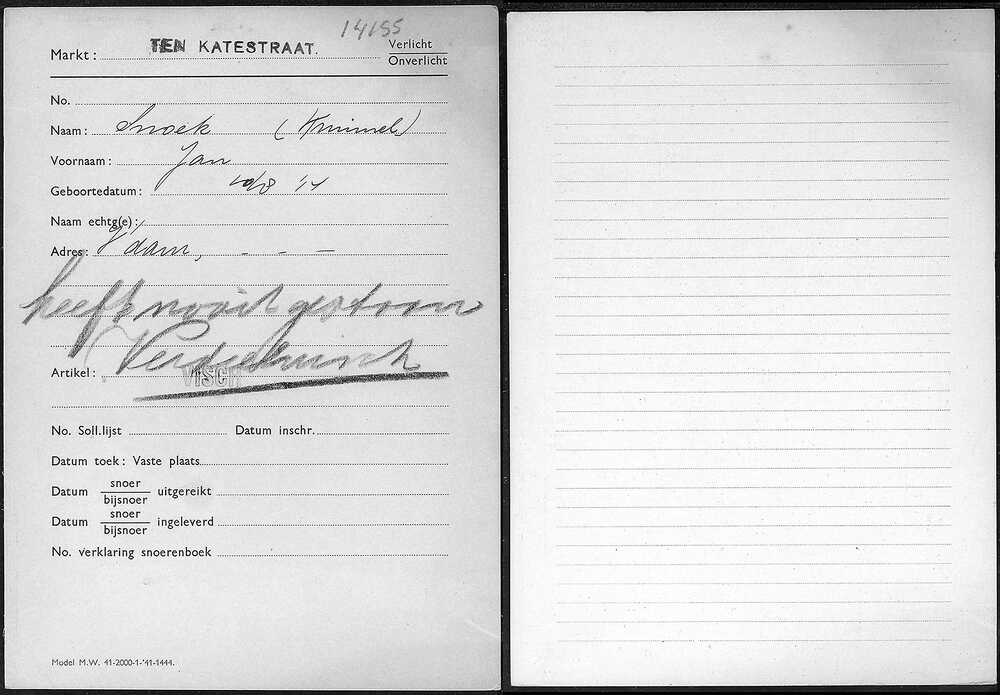 14155
Markt: TEN KATESTRAAT. Verlicht
Onverlicht
No.
Naam: Snoek (Kmimel)
Voornaam: Jan
Geboortedatum: 10/8 '14
Naam echtg(e):
Adres: Y'dam, - - -
heeft nooit gestaan
Artikel: VISCH
No. Soll.lijst Datum inschr.
Datum toek: Vaste plaats
Datum snoer uitgereikt
bijsnoer
Datum snoer ingeleverd
bijsnoer
No. verklaring snoerenboek
Model M.W. 41-2000-1-'41-1444.